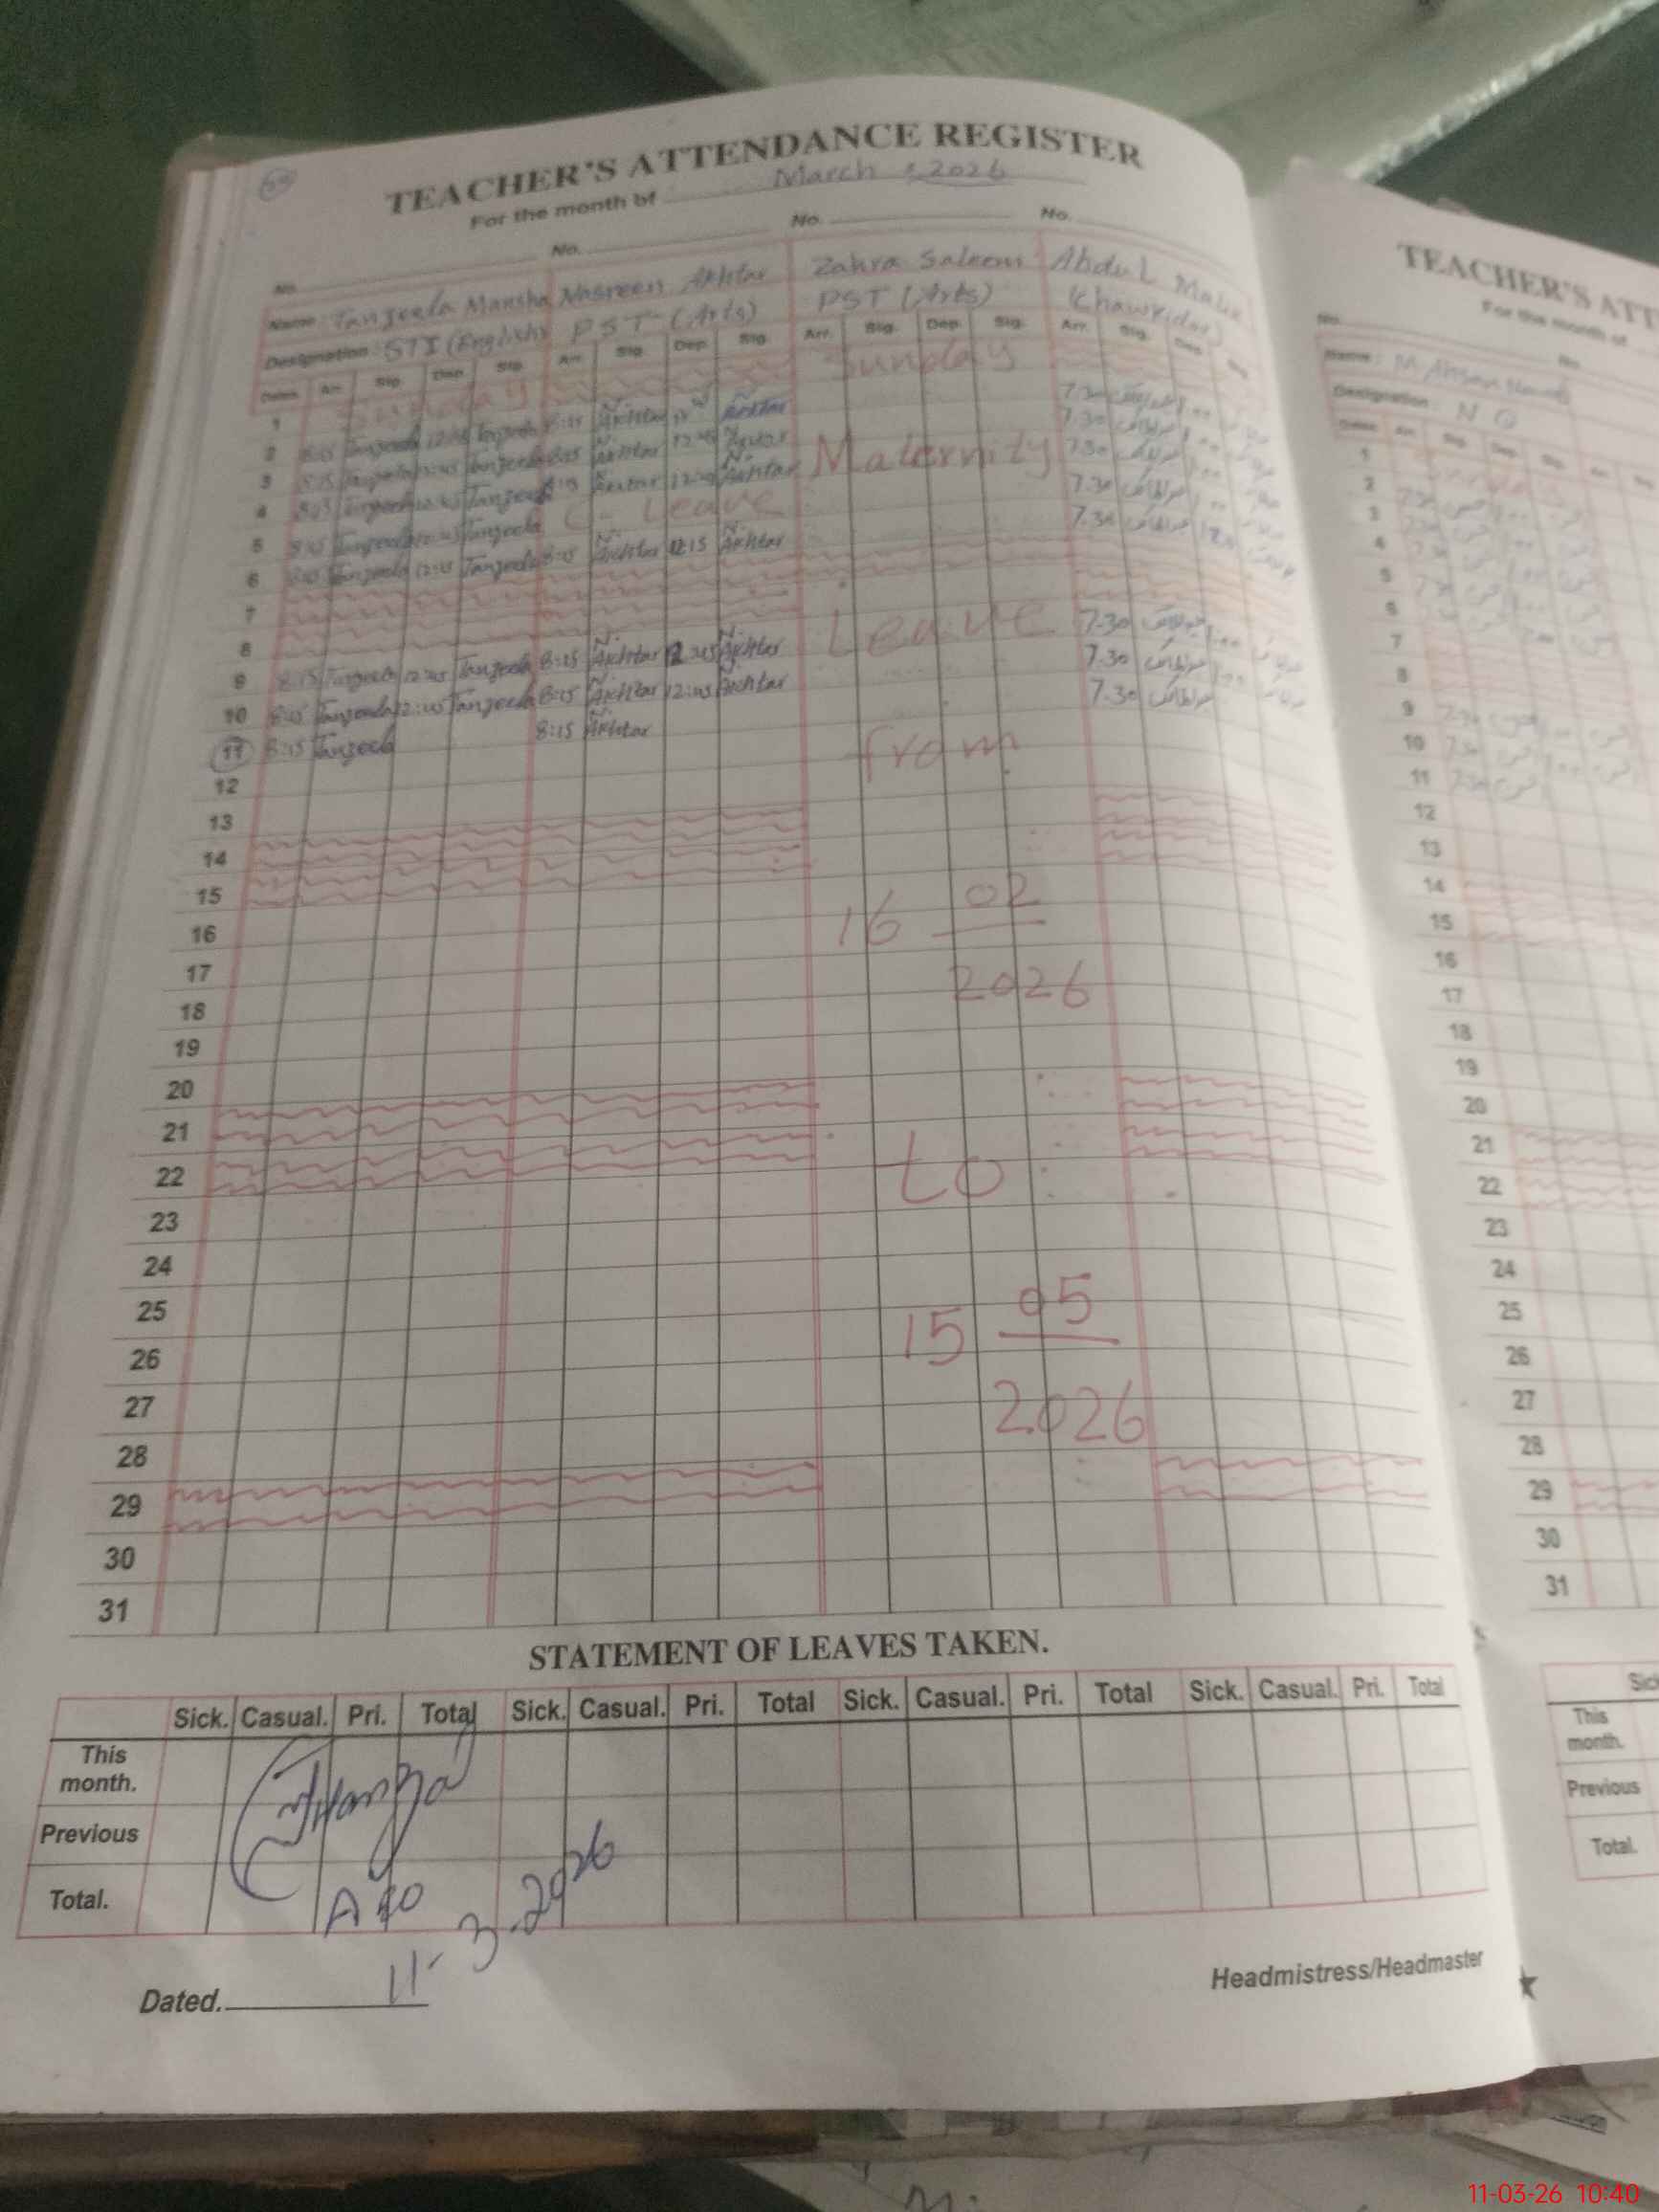 TEACHER'S ATTENDANCE REGISTER
For the month of March, 2026
No. No. No. No.
Name: Tanjeela Mansha Nasreen Akhtar Zahra Saleem Abdul Malik
Designation: STI (English) PST (Arts) PST (Arts) (Chawkidar)
Dates Arr. Sig. Dep. Sig. Arr. Sig. Dep. Sig. Arr. Sig. Dep. Sig. Arr. Sig. Dep. Sig.
1 Sunday Sunday
2 8:15 Tanjeela 12:45 Tanjeela 8:15 N. Akhtar N. Akhtar 7.30
3 8:15 Tanjeela 12:45 Tanjeela 8:15 N. Akhtar 12:45 N. Akhtar 7.30
4 8:15 Tanjeela 12:45 Tanjeela 8:15 N. Akhtar 12:45 N. Akhtar Maternity 7.30
5 8:15 Tanjeela 12:45 Tanjeela C- Leave 7.30
6 8:15 Tanjeela 12:15 Tanjeela 8:15 N. Akhtar 12:15 N. Akhtar 7.30
7
8
9 8:15 Tanjeela 12:45 Tanjeela 8:15 N. Akhtar 12:45 N. Akhtar Leave 7.30
10 8:15 Tanjeela 12:45 Tanjeela 8:15 N. Akhtar 12:45 N. Akhtar 7.30
11 8:15 Tanjeela 8:15 N. Akhtar from 7.30
12
13
14
15
16 16 02
17 2026
18
19
20
21
22 to
23
24
25
26 15 05
27 2026
28
29
30
31
STATEMENT OF LEAVES TAKEN.
Sick. Casual. Pri. Total Sick. Casual. Pri. Total Sick. Casual. Pri. Total Sick. Casual. Pri. Total
This month.
Previous
Total.
11-3-2026
Dated.
Headmistress/Headmaster
TEACHER'S ATT
For the month of
No.
Name: M.
Designation:
Dates Arr. Sig. Dep. Sig. Arr.
1
2
3
4
5
6
7
8
9
10
11
12
13
14
15
16
17
18
19
20
21
22
23
24
25
26
27
28
29
30
31
This month.
Previous
Total.
11-03-26 10:40